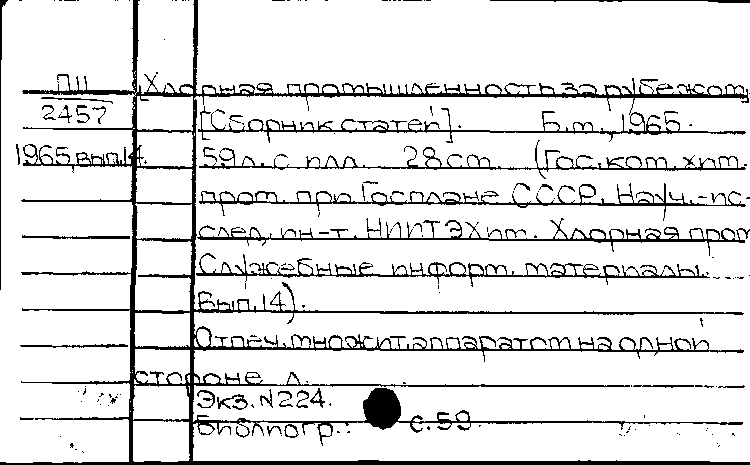 ПII [Хлорная промышленность за рубежом]
2457 [Сборник статей]. Б.м., 1965.
1965, вып.14. 59 л. с илл. 28 см. (Гос. ком. хим.
пром. при Госплане СССР. Науч.-ис-
след. ин-т. НИИТЭХим. Хлорная пром.
Служебные информ. материалы.
Вып. 14).
Отпеч. множит. аппаратом на одной
стороне л.
Экз. №224.
Библиогр.: с. 59